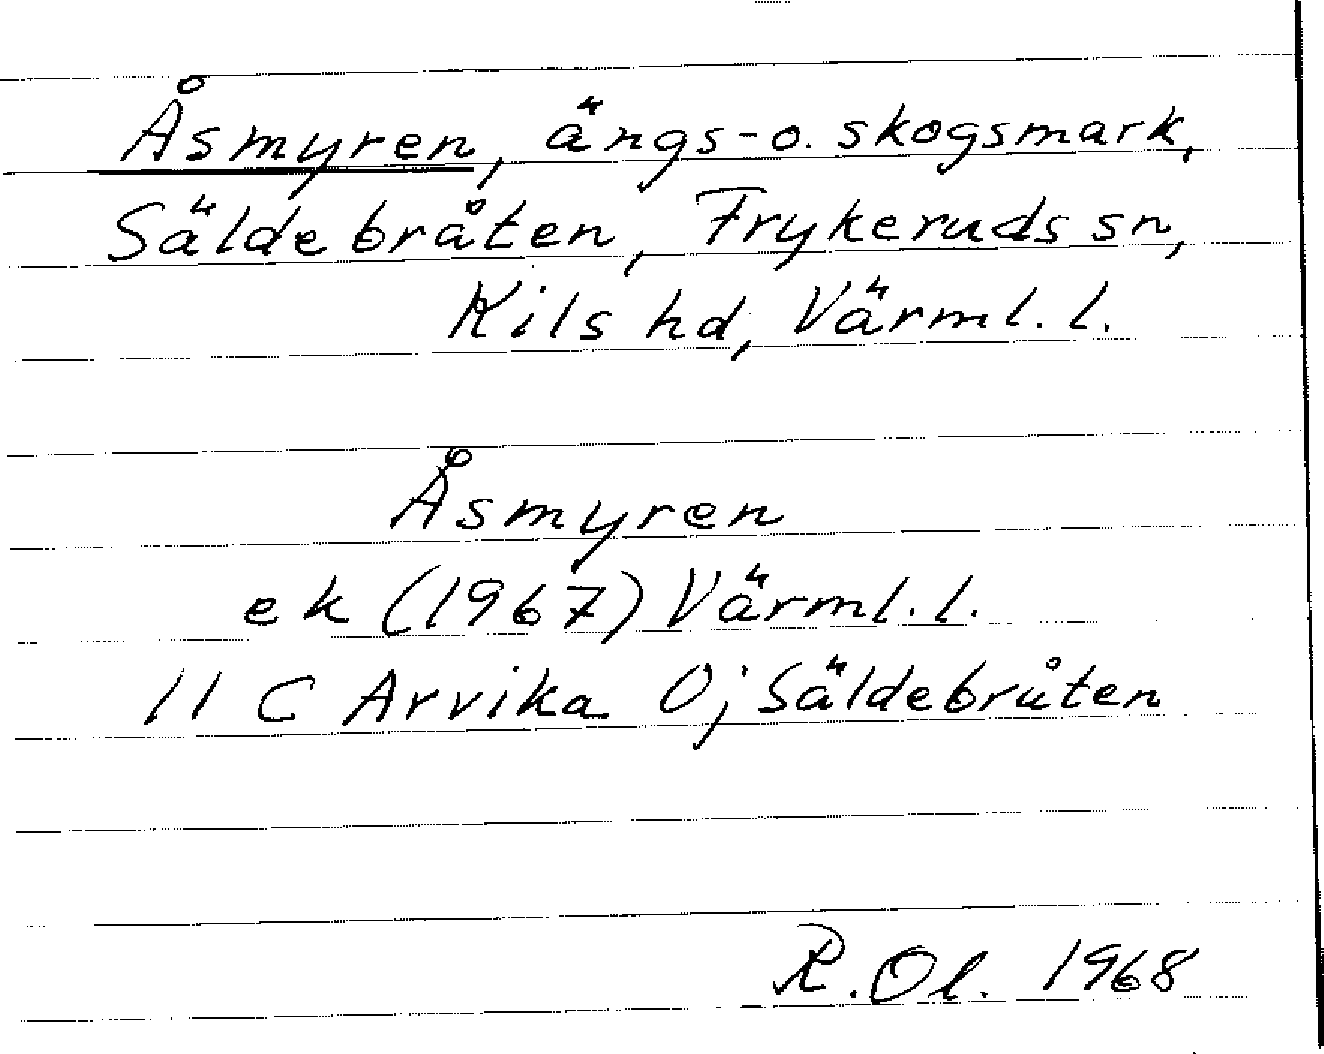 Åsmyren, ängs- o. skogsmark,
Säldebråten, Frykeruds sn,
Kils hd, Värml. l.
Åsmyren
ek (1967) Värml. l.
11 C Arvika O; Säldebråten
R. Ol. 1968